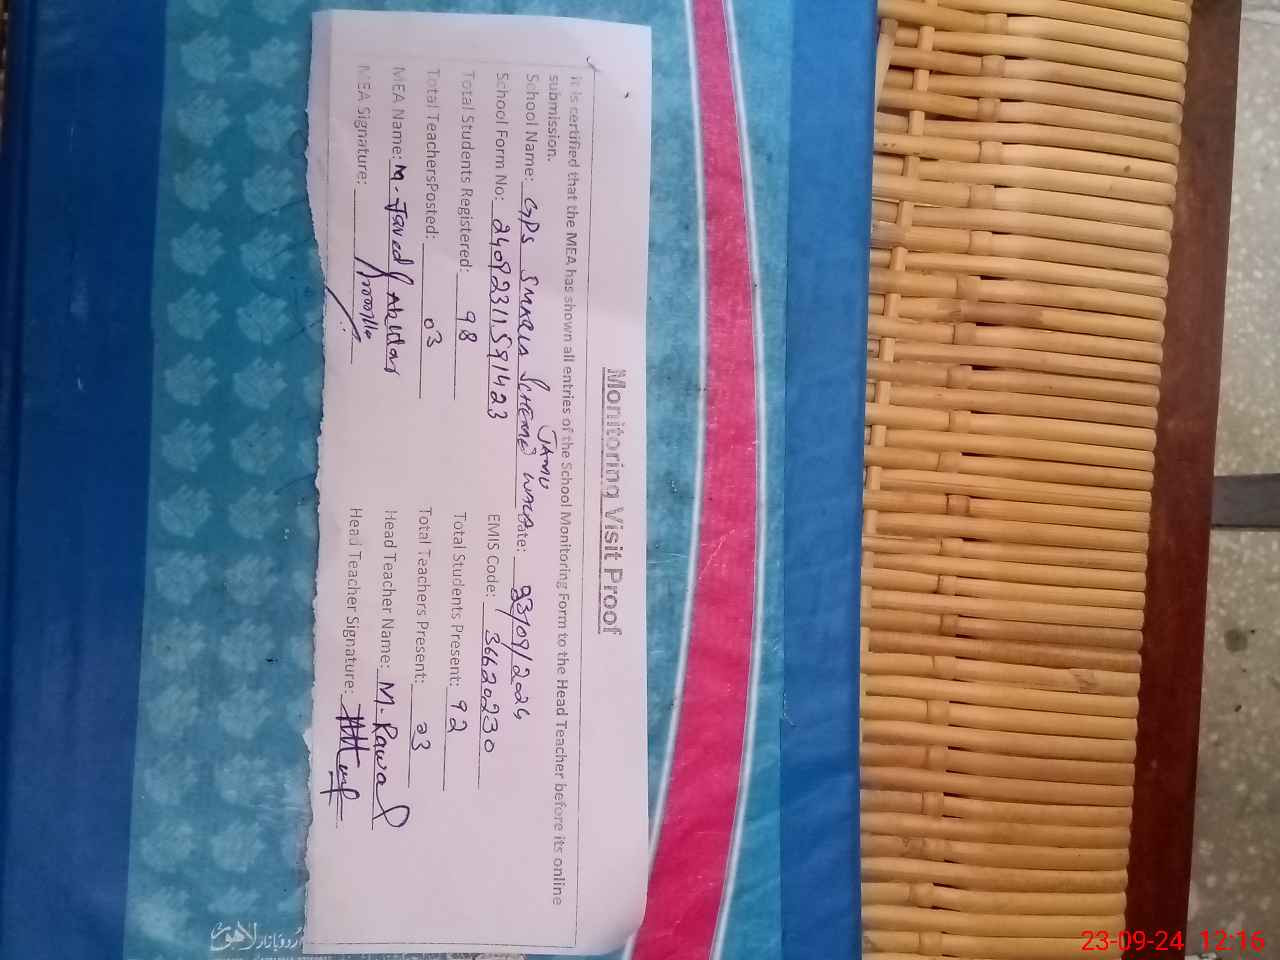 Monitoring Visit Proof
It is certified that the MEA has shown all entries of the School Monitoring Form to the Head Teacher before its online
submission.
School Name: GPS SCHEME JAMU WALA Date: 23/09/2024
School Form No: 24092311591423 EMIS Code: 36620230
Total Students Registered: 98 Total Students Present: 92
Total TeachersPosted: 03 Total Teachers Present: 03
MEA Name: M. Javed Akhtar Head Teacher Name: M. Rawal
MEA Signature: Head Teacher Signature:
اردو بازار لاہور
23-09-24 12:16